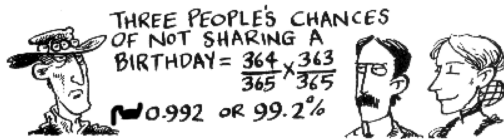 THREE PEOPLE'S CHANCES
OF NOT SHARING A
BIRTHDAY = 364/365 × 363/365
~0.992 OR 99.2%